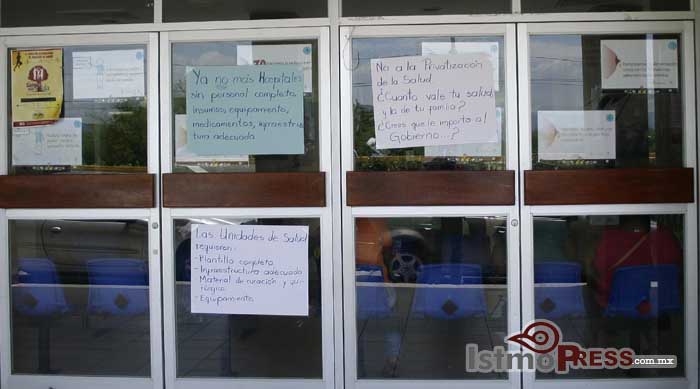 Ya no más Hospitales
sin personal completo,
insumos, equipamento,
medicamentos, infraestruc
tura adecuada
No a la Privatización
de la Salud
¿Cuanto vale tu salud
y la de tu familia?
¿Crees que le importa al
Gobierno...?
Las Unidades de Salud
requieren:
- Plantilla completa
- Infraestructura adecuada
Material de curación y qui-
rúrgico
- Equipamento
IstmoPRESS.com.mx